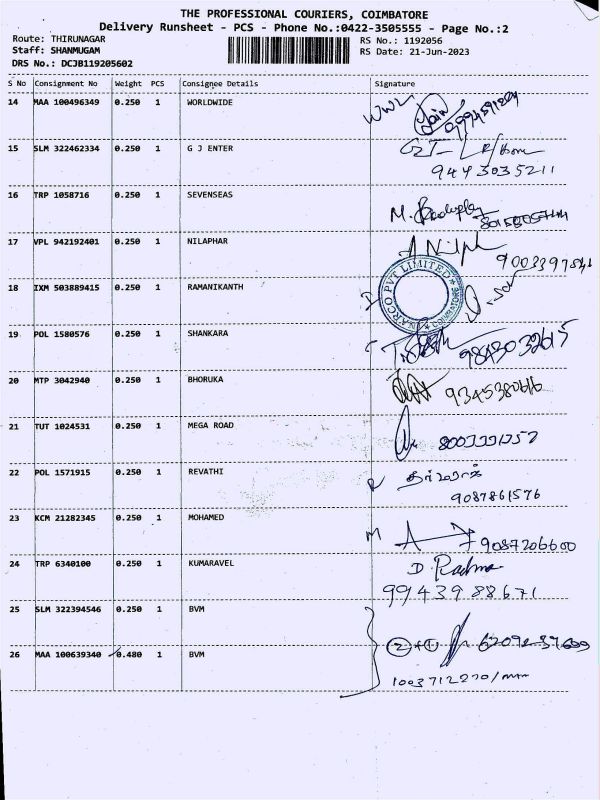 THE PROFESSIONAL COURIERS, COIMBATORE
Delivery Runsheet - PCS - Phone No.:0422-3505555 - Page No.:2
Route: THIRUNAGAR
RS No.: 1192056
Staff: SHANMUGAM
RS Date: 21-Jun-2023
DRS No.: DCJB119205602
S No Consignment No Weight PCS Consignee Details Signature
14 MAA 100496349 0.250 1 WORLDWIDE WWL
15 SLM 322462334 0.250 1 G J ENTER
9443035211
16 TRP 1058716 0.250 1 SEVENSEAS M.
17 VPL 942192401 0.250 1 NILAPHAR
18 IXM 503889415 0.250 1 RAMANIKANTH
PVT LIMITED
COIMBATORE
19 POL 1580576 0.250 1 SHANKARA
9843032615
20 MTP 3042940 0.250 1 BHORUKA
21 TUT 1024531 0.250 1 MEGA ROAD
22 POL 1571915 0.250 1 REVATHI
9087861576
23 KCM 21282345 0.250 1 MOHAMED M
9087206600
24 TRP 6340100 0.250 1 KUMARAVEL D. Radma
9943988671
25 SLM 322394546 0.250 1 BVM
26 MAA 100639340 0.480 1 BVM